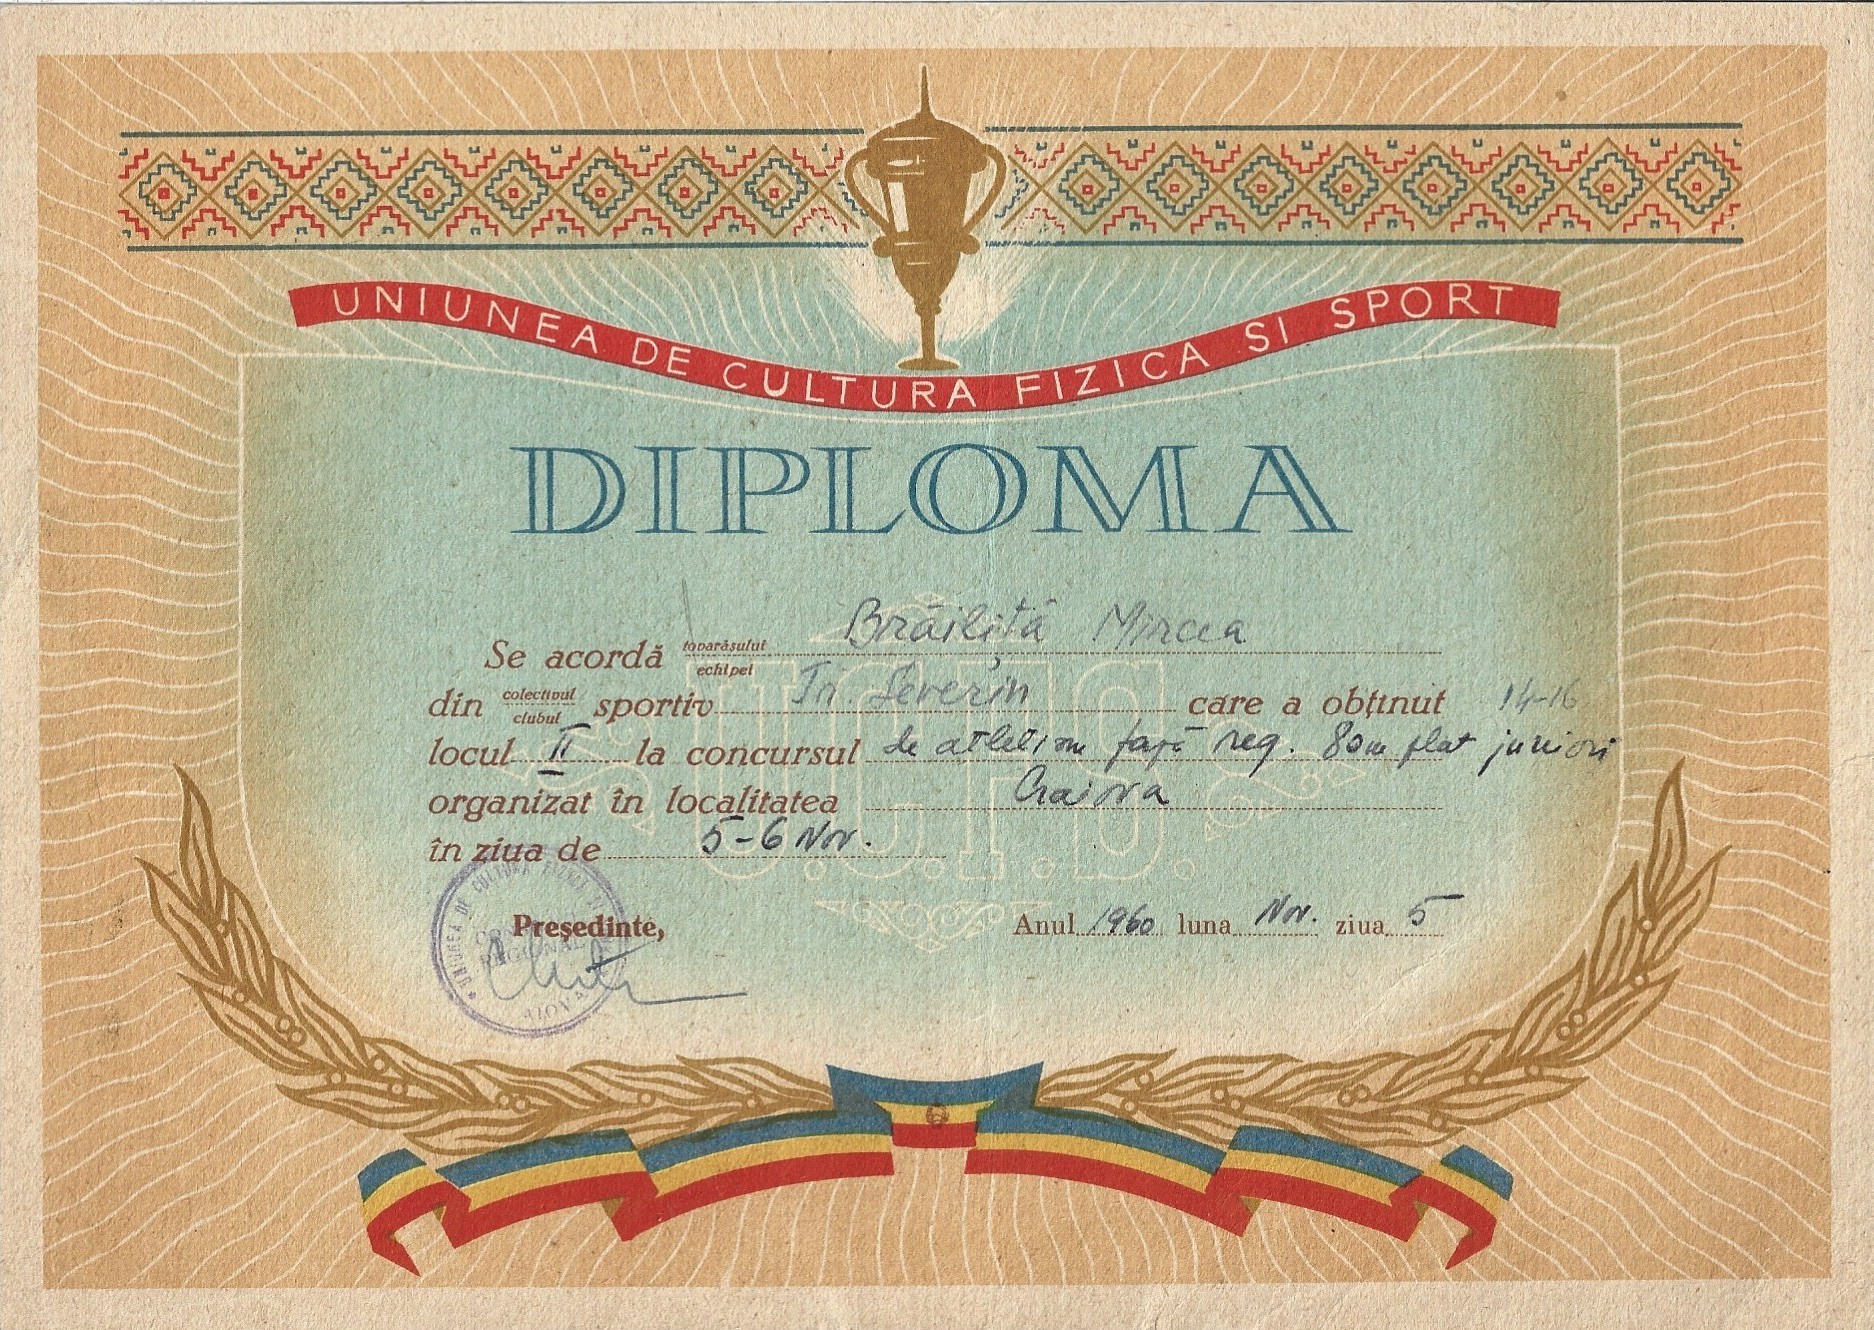 UNIUNEA DE CULTURA FIZICA SI SPORT
DIPLOMA
Se acordă tovarăşului echipei Brăiliță Mircea
din colectivul clubul sportiv Tr. Severin care a obţinut 14-16
locul II la concursul de atletism faza reg. 80m plat juniori
organizat în localitatea Craiova
în ziua de 5-6 Nov.
U.C.F.S.
Preşedinte,
Anul 1960 luna Nov. ziua 5
UNIUNEA DE CULTURA FIZICA
REGIONAL